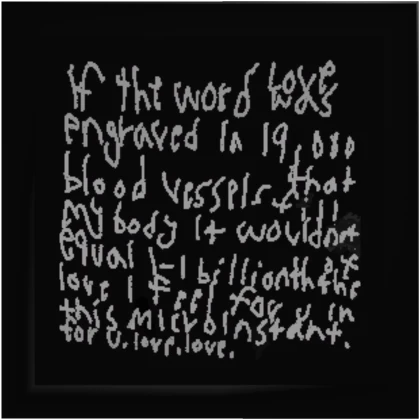 If the word love was
engraved in 19,000
blood vessels that fill
my body it wouldnt
equal 1-1 billionth of the
love I feel for u in
this microinstant.
for u. love. love.